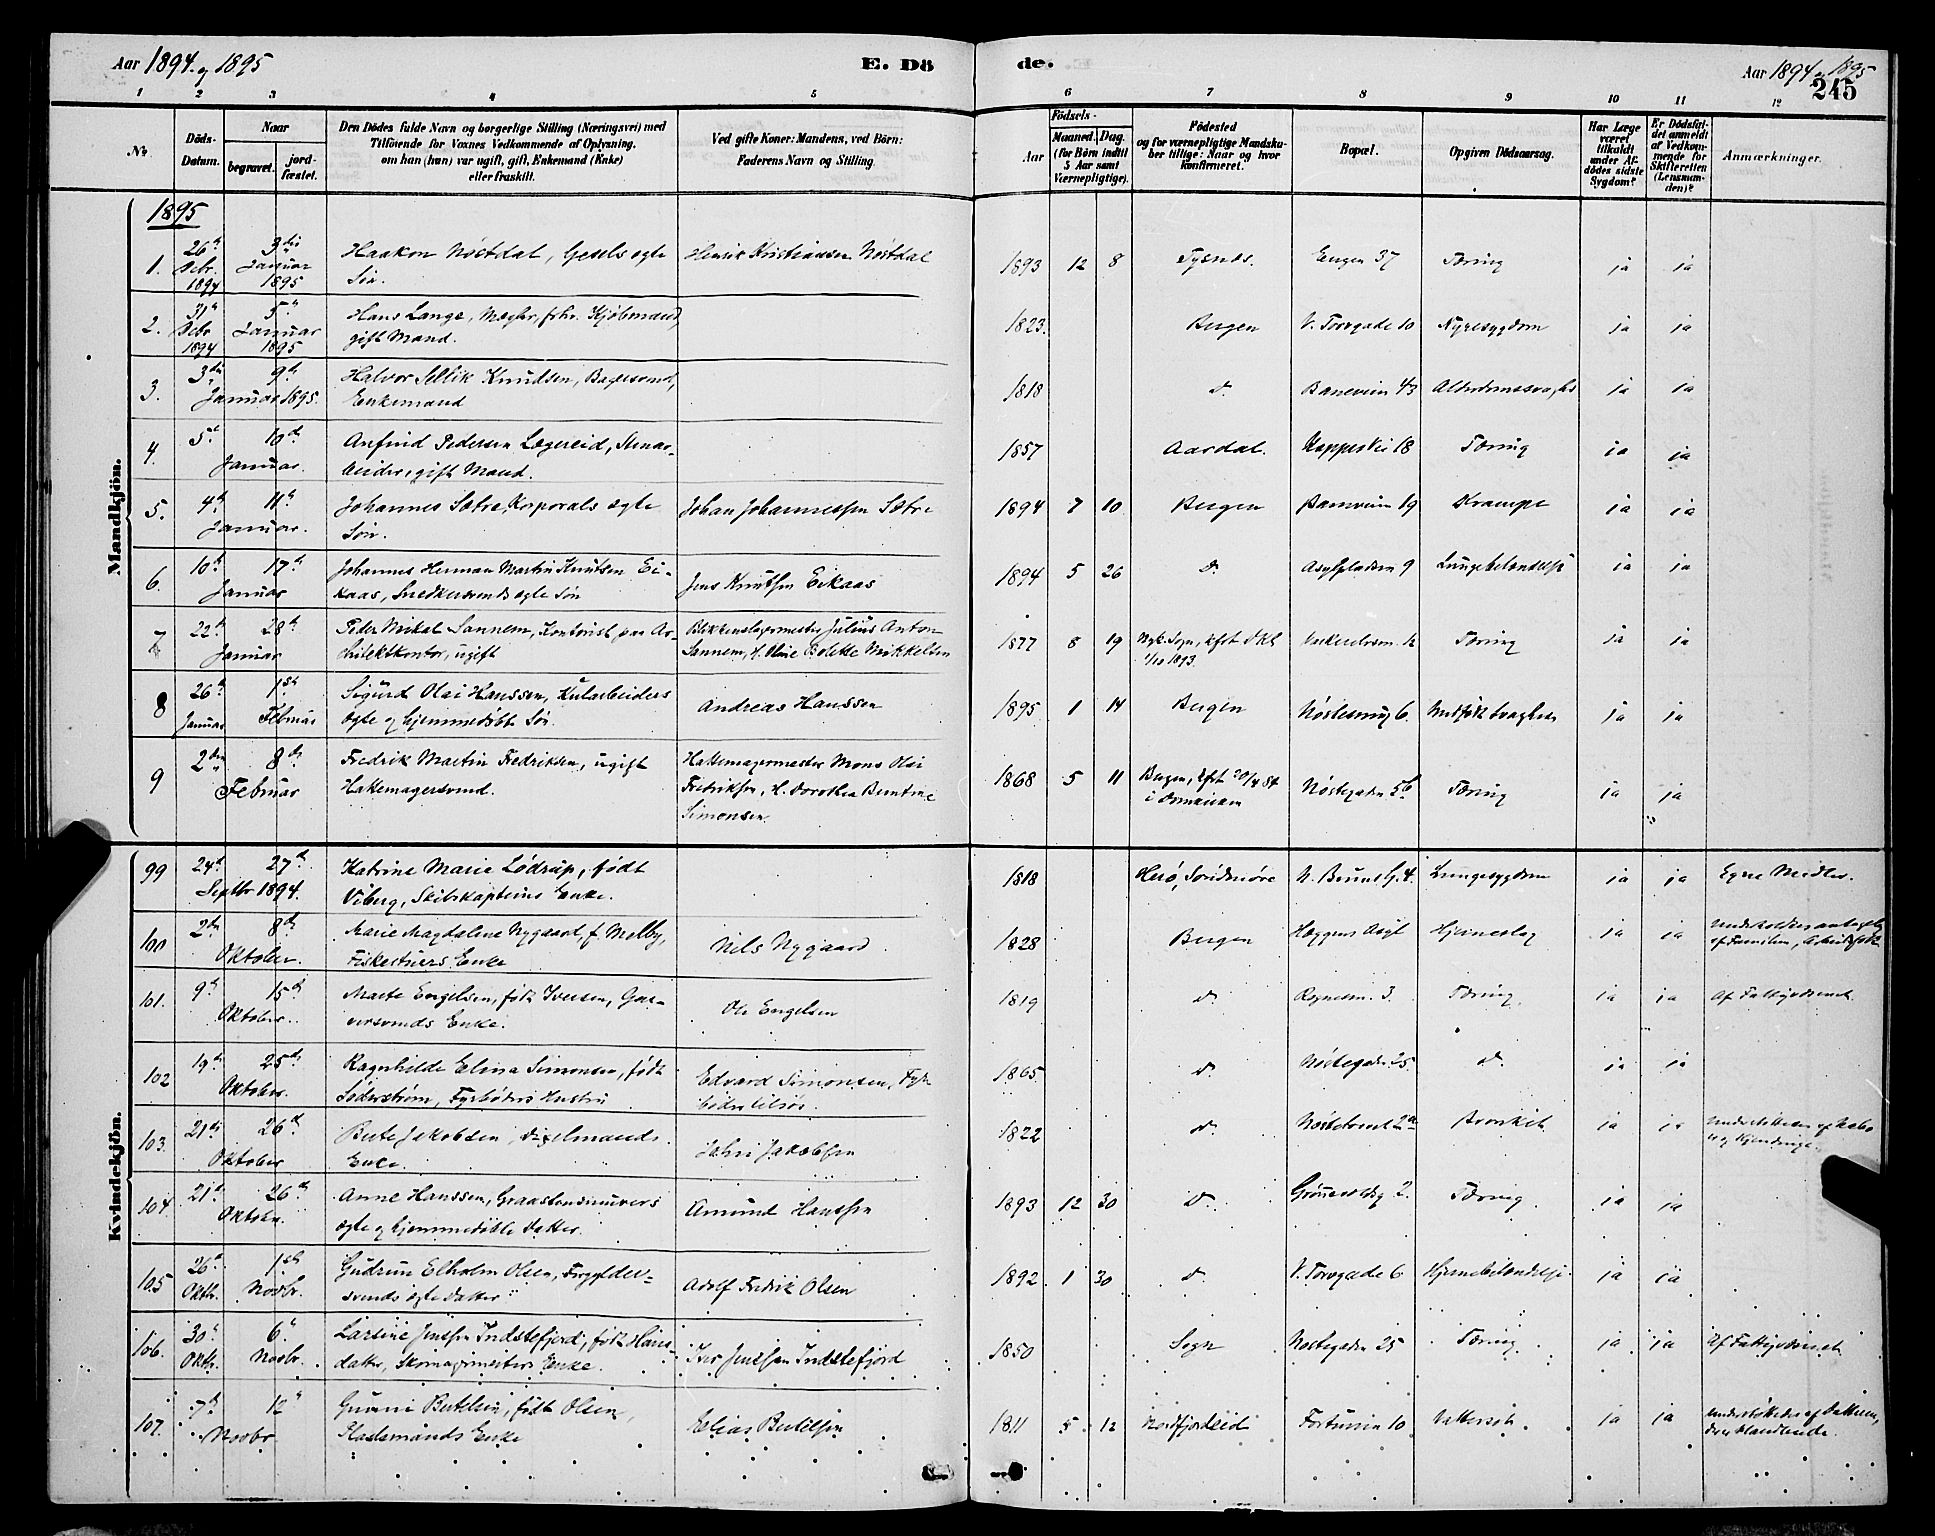 Aar 1894 og 1895
E. Dö
de.
Aar 1894 og 1895
245
1 2 3 4 5 6 7 8 9 10 11 12
No.
Döds-Datum.
Naar
begravet.
jordfæstet.
Den Dödes fulde Navn og borgerlige Stilling (Næringsvei) med
Tilföiende for Voxnes Vedkommende af Oplysning,
om han (hun) var ugift, gift, Enkemand (Enke)
eller fraskilt.
Ved gifte Koner: Mandens, ved Börn:
Faderens Navn og Stilling.
Födsels-
Aar
Maaned. Dag.
(for Börn indtil
5 Aar samt
Værnepligtige).
Födested
og for værnepligtige Mandska-
ber tillige: Naar og hvor
konfirmeret.
Bopæl.
Opgiven Dödsaarsag.
Har Læge
været
tilkaldt
under Af-
dödes sidste
Sygdom?
Er Dödsfal-
det anmeldt
af Vedkom-
mende for
Skifteretten
(Lensman-
den)?
Anmærkninger.
Mandkjön.
1895
1. 26de Debr. 1894 3die Januar 1895 Haakon Nöstdal, Gesels ægte Sön. Henrik Kristiansen Nöstdal 1893 12 8 Tysnes. Engen 37 Tæring ja ja
2. 31te Debr 1894 5te Januar 1895 Hans Lange, Mægler, forhv. Kjöbmand, gift Mand. 1823. Bergen V. Torvgade 10 Nyresygdom ja ja
3. 3die 9de Januar 1895. Halvor Sellik Knudsen, Bagersvend, Enkemand 1818 do. Baneveien 43 ja ja
4. 5te 10de Januar. Arnfind Pedersen Lægereid, Stenar-
beider, gift Mand. 1857 Aardal. 18 Tæring ja ja
5. 4de 11te Januar. Johannes Sætre, Korporals ægte Sön. Johan Johannessen Sætre 1894 7 10 Bergen 19 Krampe ja ja
6. 10de 17de Januar Johannes Herman Martin Knutsen Ei-
kaas, Snedkersvends ægte Sön Jens Knutsen Eikaas 1894 5 26 do. Asylpladsen 9 Lungebetændelse ja ja
7 22de 28de Januar Peder Mikal Sannem, Kontorist paa Ar-
kitektkontor, ugift Blikkenslagermester Julius Anton
Sannem, H. Oline Bolette Mikkelsen 1877 8 19 Nyk. Sogn, kfrt Dkk 1/10 1893. 12 Tæring ja ja
8 26de Januar 1ste Februar Sigurd Olai Hanssen, Kularbeiders
ægte og hjemmedöbte Sön. Andreas Hanssen 1895 1 14 Bergen Nöstesmug 6. Medfödt Svaghed ja ja
9 2den 8de Februar Fredrik Martin Fredriksen, ugift
Hattemagersvend. Hattemagermester Mons Olai
Fredriksen, H. Dorothea Berntine
Simonsen 1868 5 11 Bergen, kfrt 20/4 84
i Domkirken Nöstegaden 56 Tæring ja ja
Kvindekjön.
99 24de 27de Septbr 1894. Katrine Marie Lödrup, födt
Viberg, Skibskapteins Enke. 1818 Herö, Söndmöre N. 4. Lungesygdom ja ja Egne Midler.
100 2den 8de Oktober. Marie Magdalene Nygaard, f. Melby,
Fiskestuers Enke Nils Nygaard 1828 Bergen Hæggens Asyl Hjerneslag ja ja af Familien,
101. 9de 15de Oktober. Marte Engelsen, födt Iversen, Gar-
versvends Enke. Ole Engelsen 1819 do 3. Tæring. ja ja Af Fattigvæsenet.
102 19de 25de Oktober. Ragnhilde Elina Simonsen, födt
Söderström, Fyrböders Hustru Edvard Simonsen, Fyr-
böder tilsjös. 1865. do. Nöstegaden 25 do. ja ja
103. 21de 26de Oktober Berte Jakobsen,
Enke. Jakobsen 1822 do. Bronkit ja
104. 21de 26de Oktober. Anne Hanssen, Graastensmurers
ægte og hjemmedöbte Datter. Amund Hanssen 1893 12 30 do. 2. Tæring ja ja
105 26de Oktbr. 1ste Novbr. Gudrun Elholm Olsen, Forgylder-
svends ægte Datter Adolf Fredrik Olsen 1892 1 30 do V. Torvgade 6 Hjernebetændelse. ja ja
106. 30te Oktbr. 6te Novbr. Larsine Jenssen Indstefjord, födt Hans-
datter, Skomagermesters Enke. Iver Jenssen Indstefjord 1850 Sogn Nöstegaden 25 Tæring ja ja Af Fattigvæsenet
107. 7de 12te Novbr. Gurine Bertelsen, födt Olsen,
Enke Elias Bertelsen 1811 5 12 Nordfjordeid Fortunen 10 Vattersot. ja ja understöttedes af Datteren,